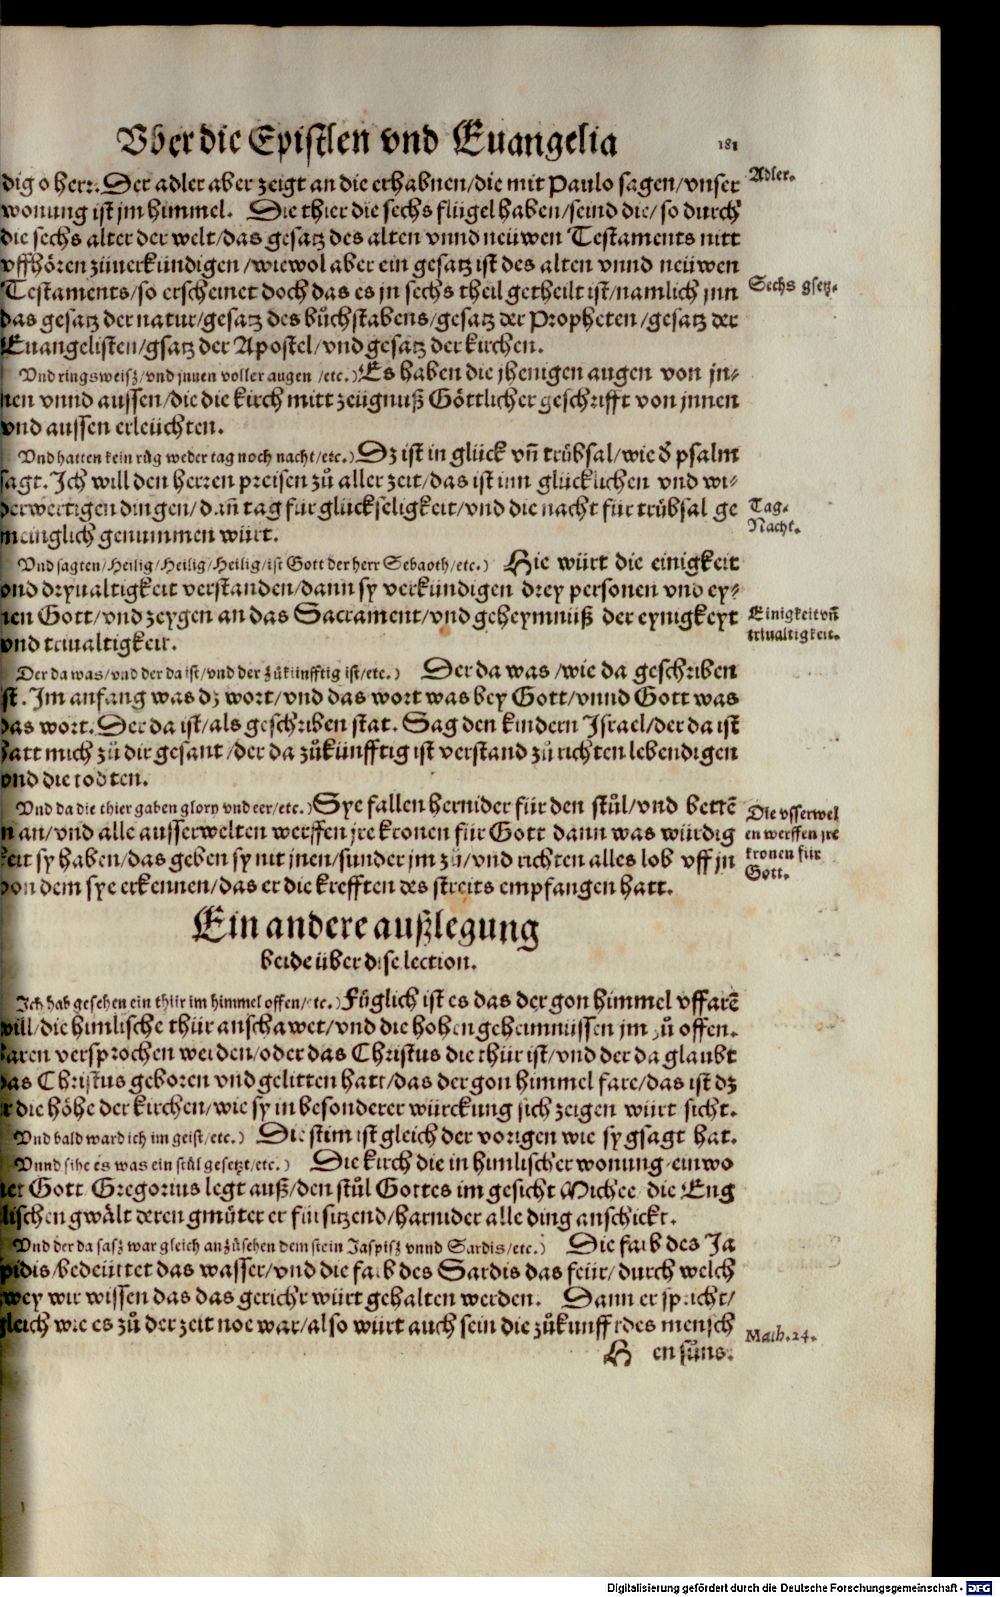 Vber die Epistlen vnd Euangelia 181
dig o herr. Der adler aber zeigt an die erhabnen/die mit Paulo sagen/vnser
Adler.
wonung ist jm himmel. Die thier die sechs flügel haben/seind die/so durch
die sechs alter der welt/das gesatz des alten vnnd neüwen Testaments nitt
vffhören zůuerkündigen/wiewol aber ein gesatz ist des alten vnnd neüwen
Testaments/so erscheinet doch das es jn sechs theil getheilt ist/namlich jnn
Sechs gsetz.
das gesatz der natur/gesatz des bůchstabens/gesatz der Propheten/gesatz der
Euangelisten/gsatz der Apostel/vnd gesatz der kirchen.
Vnd ringsweisz/vnd jnnen voller augen/etc.) Es haben die jhenigen augen von jn-
nen vnnd aussen/die die kirch mitt zeügnuß Göttlicher geschrifft von jnnen
vnd aussen erleüchten.
Vnd hatten kein růg weder tag noch nacht/etc.) Dz ist in glück vñ trübsal/wie d psalm
sagt. Ich will den herren preisen zů aller zeit/das ist inn glücklichen vnd wi-
derwertigen dingen/dañ tag für glückseligkeit/vnd die nacht für trübsal ge
Tag.
Nacht.
meinglich genummen würt.
Vnd sagten/Heilig/Heilig/Heilig/ist Gott der herr Sebaoth/etc.) Hie würt die einigkeit
vnd dryualtigkeit verstanden/dann sy verkündigen drey personen vnd ey-
nen Gott/vnd zeygen an das Sacrament/vnd geheymnüß der eynigkeyt
Einigkeit vñ
triualtigkeit.
vnd triualtigkeit.
Der da was/vnd der da ist/vnd der zůkünfftig ist/etc.) Der da was/wie da geschriben
st. Im anfang was dz wort/vnd das wort was bey Gott/vnnd Gott was
das wort. Der da ist/als geschriben stat. Sag den kindern Israel/der da ist
hatt mich zů dir gesant/der da zůkünfftig ist verstand zů richten lebendigen
vnd die todten.
Vnd da die thier gaben glory vnd eer/etc.) Sye fallen hernider für den stůl/vnd bettē
n an/vnd alle ausserwelten werffen jre kronen für Gott dann was würdig
Die vsserwel
en werffen jre
kronen für
Gott.
keit sy haben/das geben sy nit jnen/sunder jm zů/vnd richten alles lob vff jn
von dem sye erkennen/das er die krefften des streits empfangen hatt.
Ein andere außlegung
beide über dise lection.
Ich hab gesehen ein thür im himmel offen/etc.) Füglich ist es das der gon himmel vffarē
will/die himlische thür anschawet/vnd die hohen geheimnussen jm zů offen.
baren versprochen werden/oder das Christus die thür ist/vnd der da glaubt
das Christus geboren vnd gelitten hatt/das der gon himmel fare/das ist dz
r die höhe der kirchen/wie sy in besonderer würckung sich zeigen würt sicht.
Vnd bald ward ich im geist/etc.) Die stim ist gleich der vorigen wie sy gsagt hat.
Vnnd sihe es was ein stůl gesetzt/etc.) Die kirch die in himlischer wonung einwo
net Gott Gregorius legt auß/den stůl Gottes im gesicht Michee die Eng
lischen gwält deren gmüter er für sitzend/harnider alle ding anschickt.
Vnd der da sasz war gleich anzůsehen dem stein Jaspisz vnnd Sardis/etc.) Die farb des Ja
pidis/bedeüttet das wasser/vnd die farb des Sardis das feür/durch welch
zwey wir wissen das das gericht würt gehalten werden. Dann er spricht/
gleich wie es zů der zeit noe war/also würt auch sein die zůkunfft des mensch
Math. 24.
H en sůns.
Digitalisierung gefördert durch die Deutsche Forschungsgemeinschaft - DFG